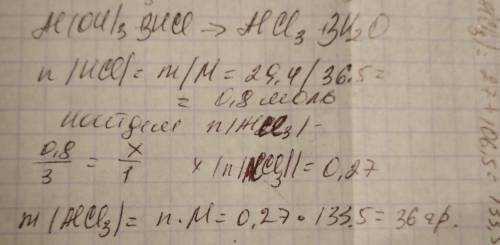 Al(OH)3 3HCl → AlCl3 3H2O
n(HCl) = m/M = 29,4/36.5 =
= 0,8 моль
найдем n(AlCl3) -
0,8/3 = x/1 x(n(AlCl3)) = 0,27
m(AlCl3) = n·M = 0,27·133.5 = 36 гр.